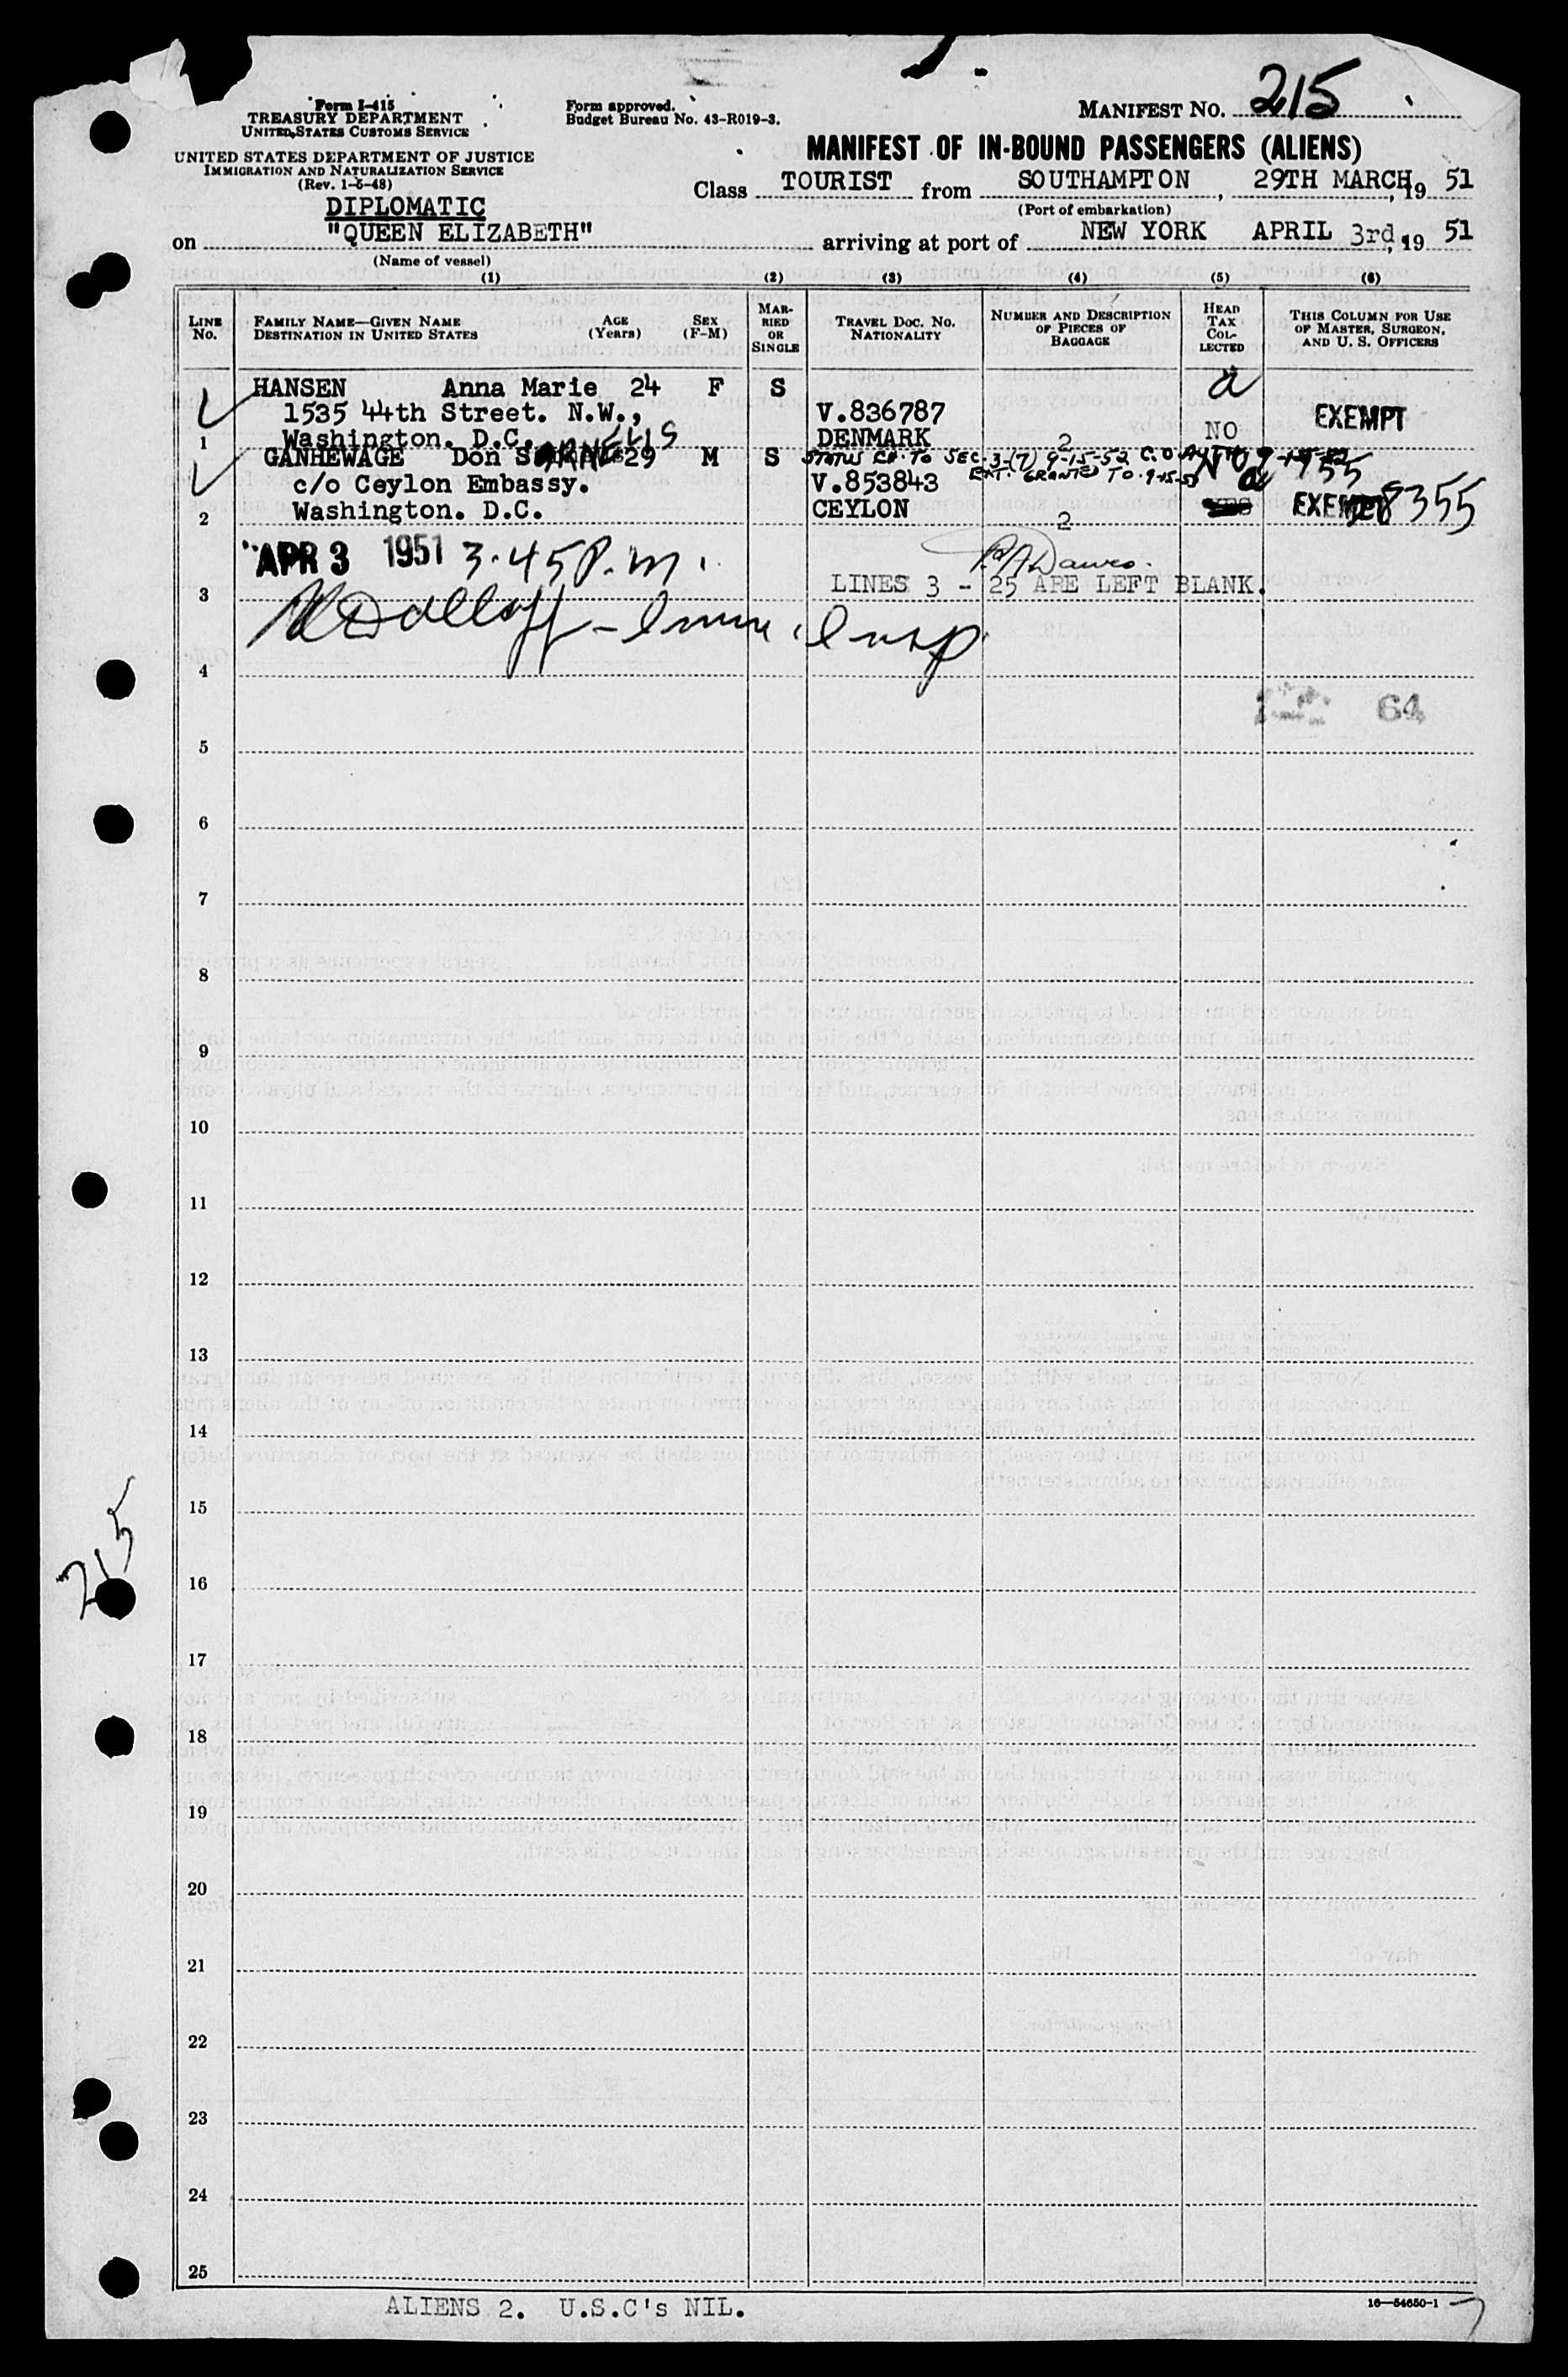 Form I-415
TREASURY DEPARTMENT
UNITED STATES CUSTOMS SERVICE
UNITED STATES DEPARTMENT OF JUSTICE
IMMIGRATION AND NATURALIZATION SERVICE
(Rev. 1-5-48)
Form approved.
Budget Bureau No. 43-R019-3.
MANIFEST No. 215
MANIFEST OF IN-BOUND PASSENGERS (ALIENS)
Class TOURIST from SOUTHAMPTON, 29TH MARCH, 19 51
(Port of embarkation)
DIPLOMATIC
on "QUEEN ELIZABETH" arriving at port of NEW YORK APRIL 3rd, 19 51
(Name of vessel)
(1) (2) (3) (4) (5) (6)
LINE No.
FAMILY NAME—GIVEN NAME
DESTINATION IN UNITED STATES
AGE (Years)
SEX (F-M)
MARRIED OR SINGLE
TRAVEL DOC. NO.
NATIONALITY
NUMBER AND DESCRIPTION OF PIECES OF BAGGAGE
HEAD TAX COLLECTED
THIS COLUMN FOR USE OF MASTER, SURGEON, AND U. S. OFFICERS
HANSEN Anna Marie 24 F S
1535 44th Street. N.W., V.836787 EXEMPT
1 Washington. D.C. DENMARK 2 NO
STATUS CH. TO SEC. 3 (7) 9-15-52 C.O.
GANHEWAGE Don ARNELIS 29 M S
EXT. GRANTED TO 9-15-53
c/o Ceylon Embassy. V.853843
2 Washington. D.C. CEYLON 2 EXEMPT 8355
APR 3 1951 3.45 P.m.
LINES 3 - 25 ARE LEFT BLANK.
3
4
64
5
6
7
8
9
10
11
12
13
14
15
215
16
17
18
19
20
21
22
23
24
25
ALIENS 2. U.S.C's NIL.
16—54650-1